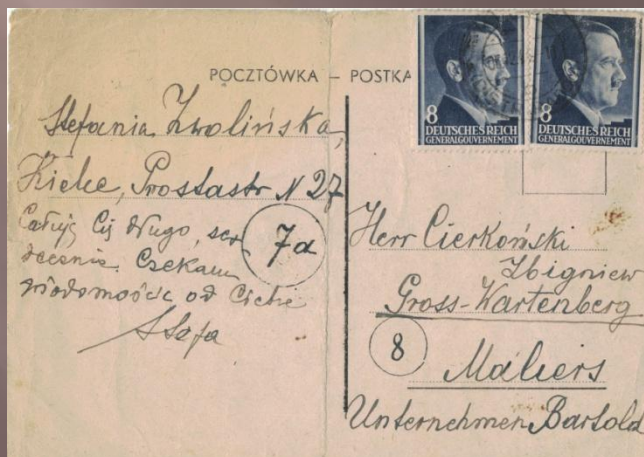 POCZTÓWKA – POSTKA
8
DEUTSCHES REICH
GENERALGOUVERNEMENT
8
DEUTSCHES REICH
GENERALGOUVERNEMENT
Stefania Zwolińska,
Kielce, Prostastr N 27
Całuję Cię długo, ser
decznie. Czekam
wiadomości od Ciebie
Stefa
7a
Herr Cierkoński
Zbigniew
Gross-Wartenberg
8
Maliers
Unternehmen Bartold